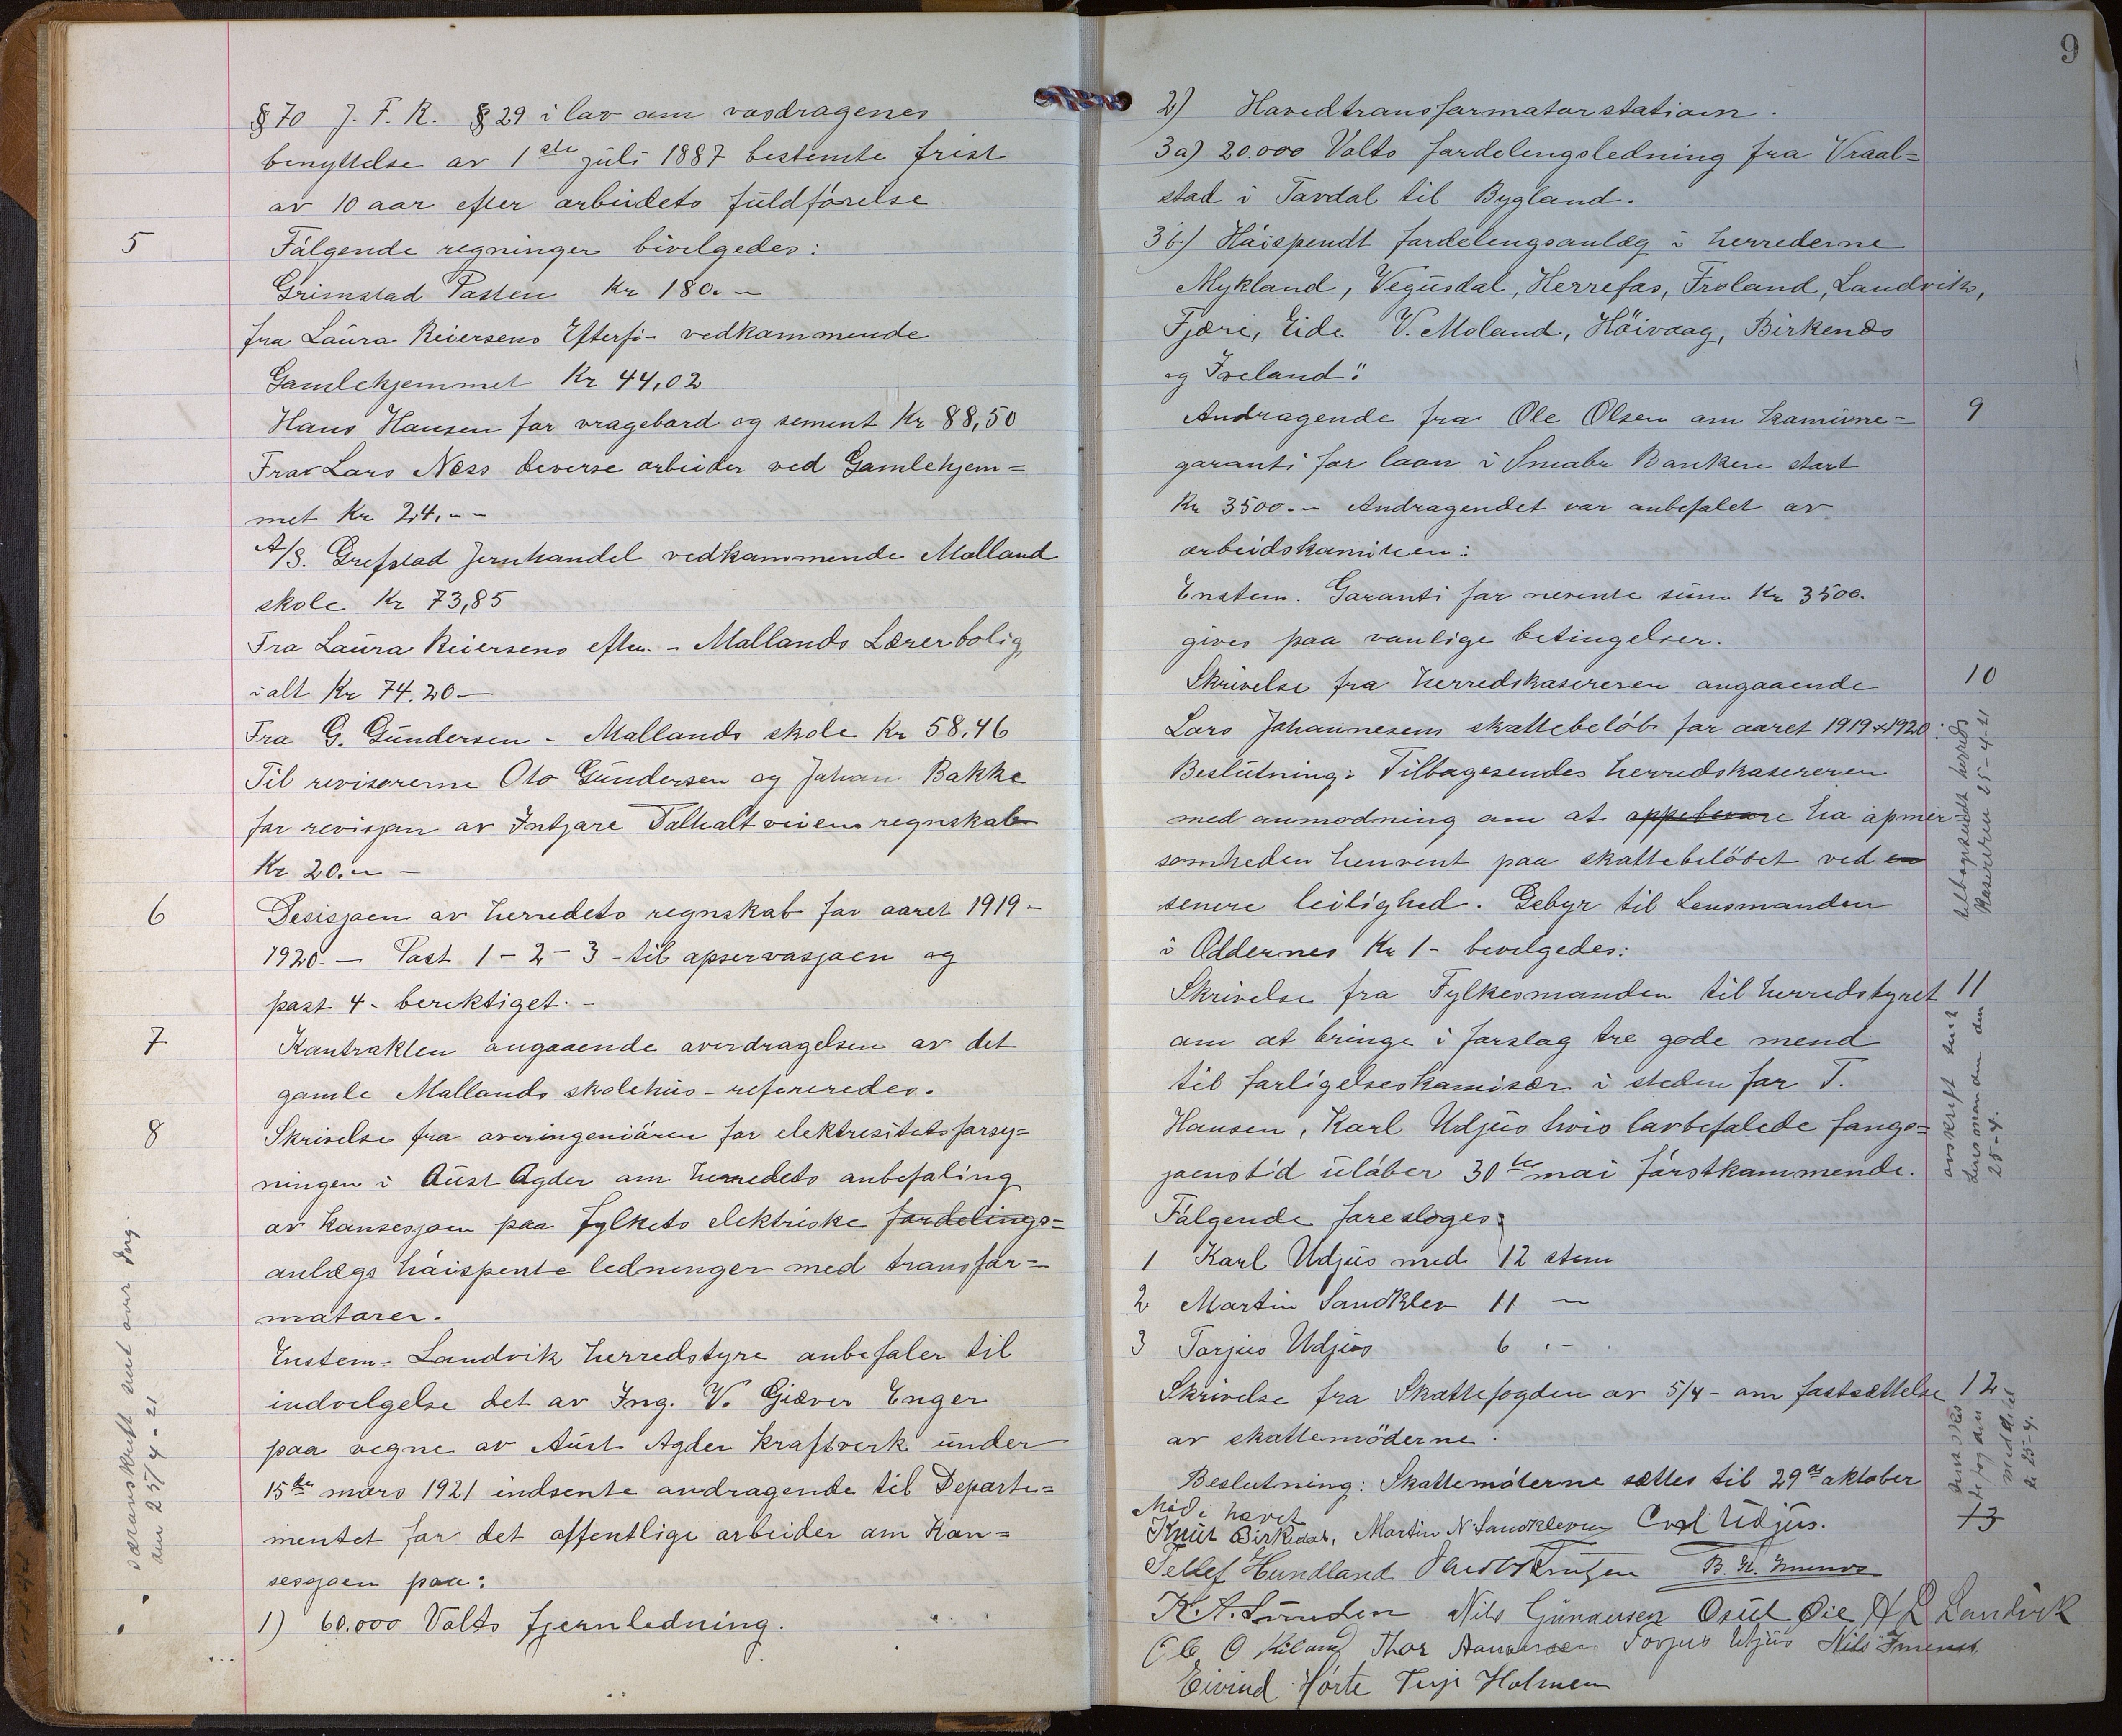 § 70 J. F. R. § 29 i lov om vasdragenes
benyttelse av 1ste juli 1887 bestemte frist
av 10 aar efter arbeidets fuldförelse
5 Fölgende regninger bivilgedes:
Grimstad Posten Kr 180.-
fra Laura Reiersens Efterf- vedkommende
Gamlehjemmet Kr 44,02
Hans Hansen for vragebord og sement Kr 88,50
Fra Lars Næss deverse arbeider ved Gamlehjem=
met Kr 24,--
A/S. Grefstad Jernhandel vedkommende Molland
skole Kr 73,85
Fra Laura Reiersens efter. - Mollands Lærerbolig
ialt Kr 74.20-
Fra G. Gundersen - Mollands skole Kr 58,46
Til revisorerne Oto Gundersen og Johan Bakke
for revisjon av Intjore Tolholt veiens regnskab
Kr 20.--
6 Desisjoen av herredets regnskab for aaret 1919-
1920.- Post 1-2-3- til opservasjoen og
post 4- berektiget.-
7 Kontrakten angaaende overdragelsen av det
gamle Mollands skolehus - refereredes.
8 Skrivelse fra overingeniören for elektresitetsforsy=
ningen i Aust Agder om herredets anbefaling
av konsesjoen paa fylkets elektriske fordelings=
anlægs höispente ledninger med transfor=
matorer.
Enstem- Landvik herredstyre anbefaler til
indvelgelse det av Ing. V. Giæver Enger
paa vegne av Aust Agder kraftverk under
15de mars 1921 indsente andragende til Departe=
mentet for det offentlige arbeider om Kon=
sesjoen paa:
1) 60.000 Volts fjernledning.
særavskrift sent over Ing.
den 25/4-21
9
2) Hovedtransformatorstatioen.
3a) 20.000 Volts fordelengsledning fra Vraal=
stad i Tovdal til Bygland.
3b) Höispendt fordelengsanlæg i herrederne
Mykland, Vegusdal, Herrefos, Froland, Landviks,
Fjære, Eide V. Moland, Höivaag, Birkenes
og Iveland."
Andragende fra Ole Olsen om komune= 9
garanti for laan i Smabr Banken stort
Kr 3500.-- Andragendet var anbefalet av
arbeidskomiteen:
Enstem. Garanti for nevente sum Kr 3500.
gives paa vanlige betingelser.
Skrivelse fra herredskasereren angaaende 10
Lars Johannesens skattebelöb for aaret 1919 x 1920:
Beslutning: Tilbagesendes herredskasereren
med anmodning om at ha opmer=
somheden henvent paa skattebelöbet ved en
senere leilighed. Gebyr til Lensmanden
i Oddernes Kr 1- bevelgedes:
tilbagesendt herreds
kasereren 25-4-21
Skrivelse fra Fylkesmanden til herredstyret 11
om at bringe i forslag tre gode mend
til forligelseskomisær i steden for T.
Hansen, Karl Udjus hvis lovbefalede fungs=
joenstid ulöber 30te mai förstkommende.
avskrift sent
Lensmanden den
25-4.
Fölgende foresloges:
1 Karl Udjus med 12 stem
2 Martin Sandklev 11 -
3 Torjus Udjus 6 -
Skrivelse fra Skattefogden av 5/4- om fastsættelse 12
av skattemöderne.
Beslutning: Skattemöterne sættes til 29de oktober
Möde hævet 13
Knut Birkedal, Martin N. Sandkleven Carl Udjus.
Tellef Hundland
K. A. Sunden Nils Gundersen Osul Øie A L Landvik
Ole O Kiland Thor Torjus Utjus Nils
Eivind Hörte Terje Holmen